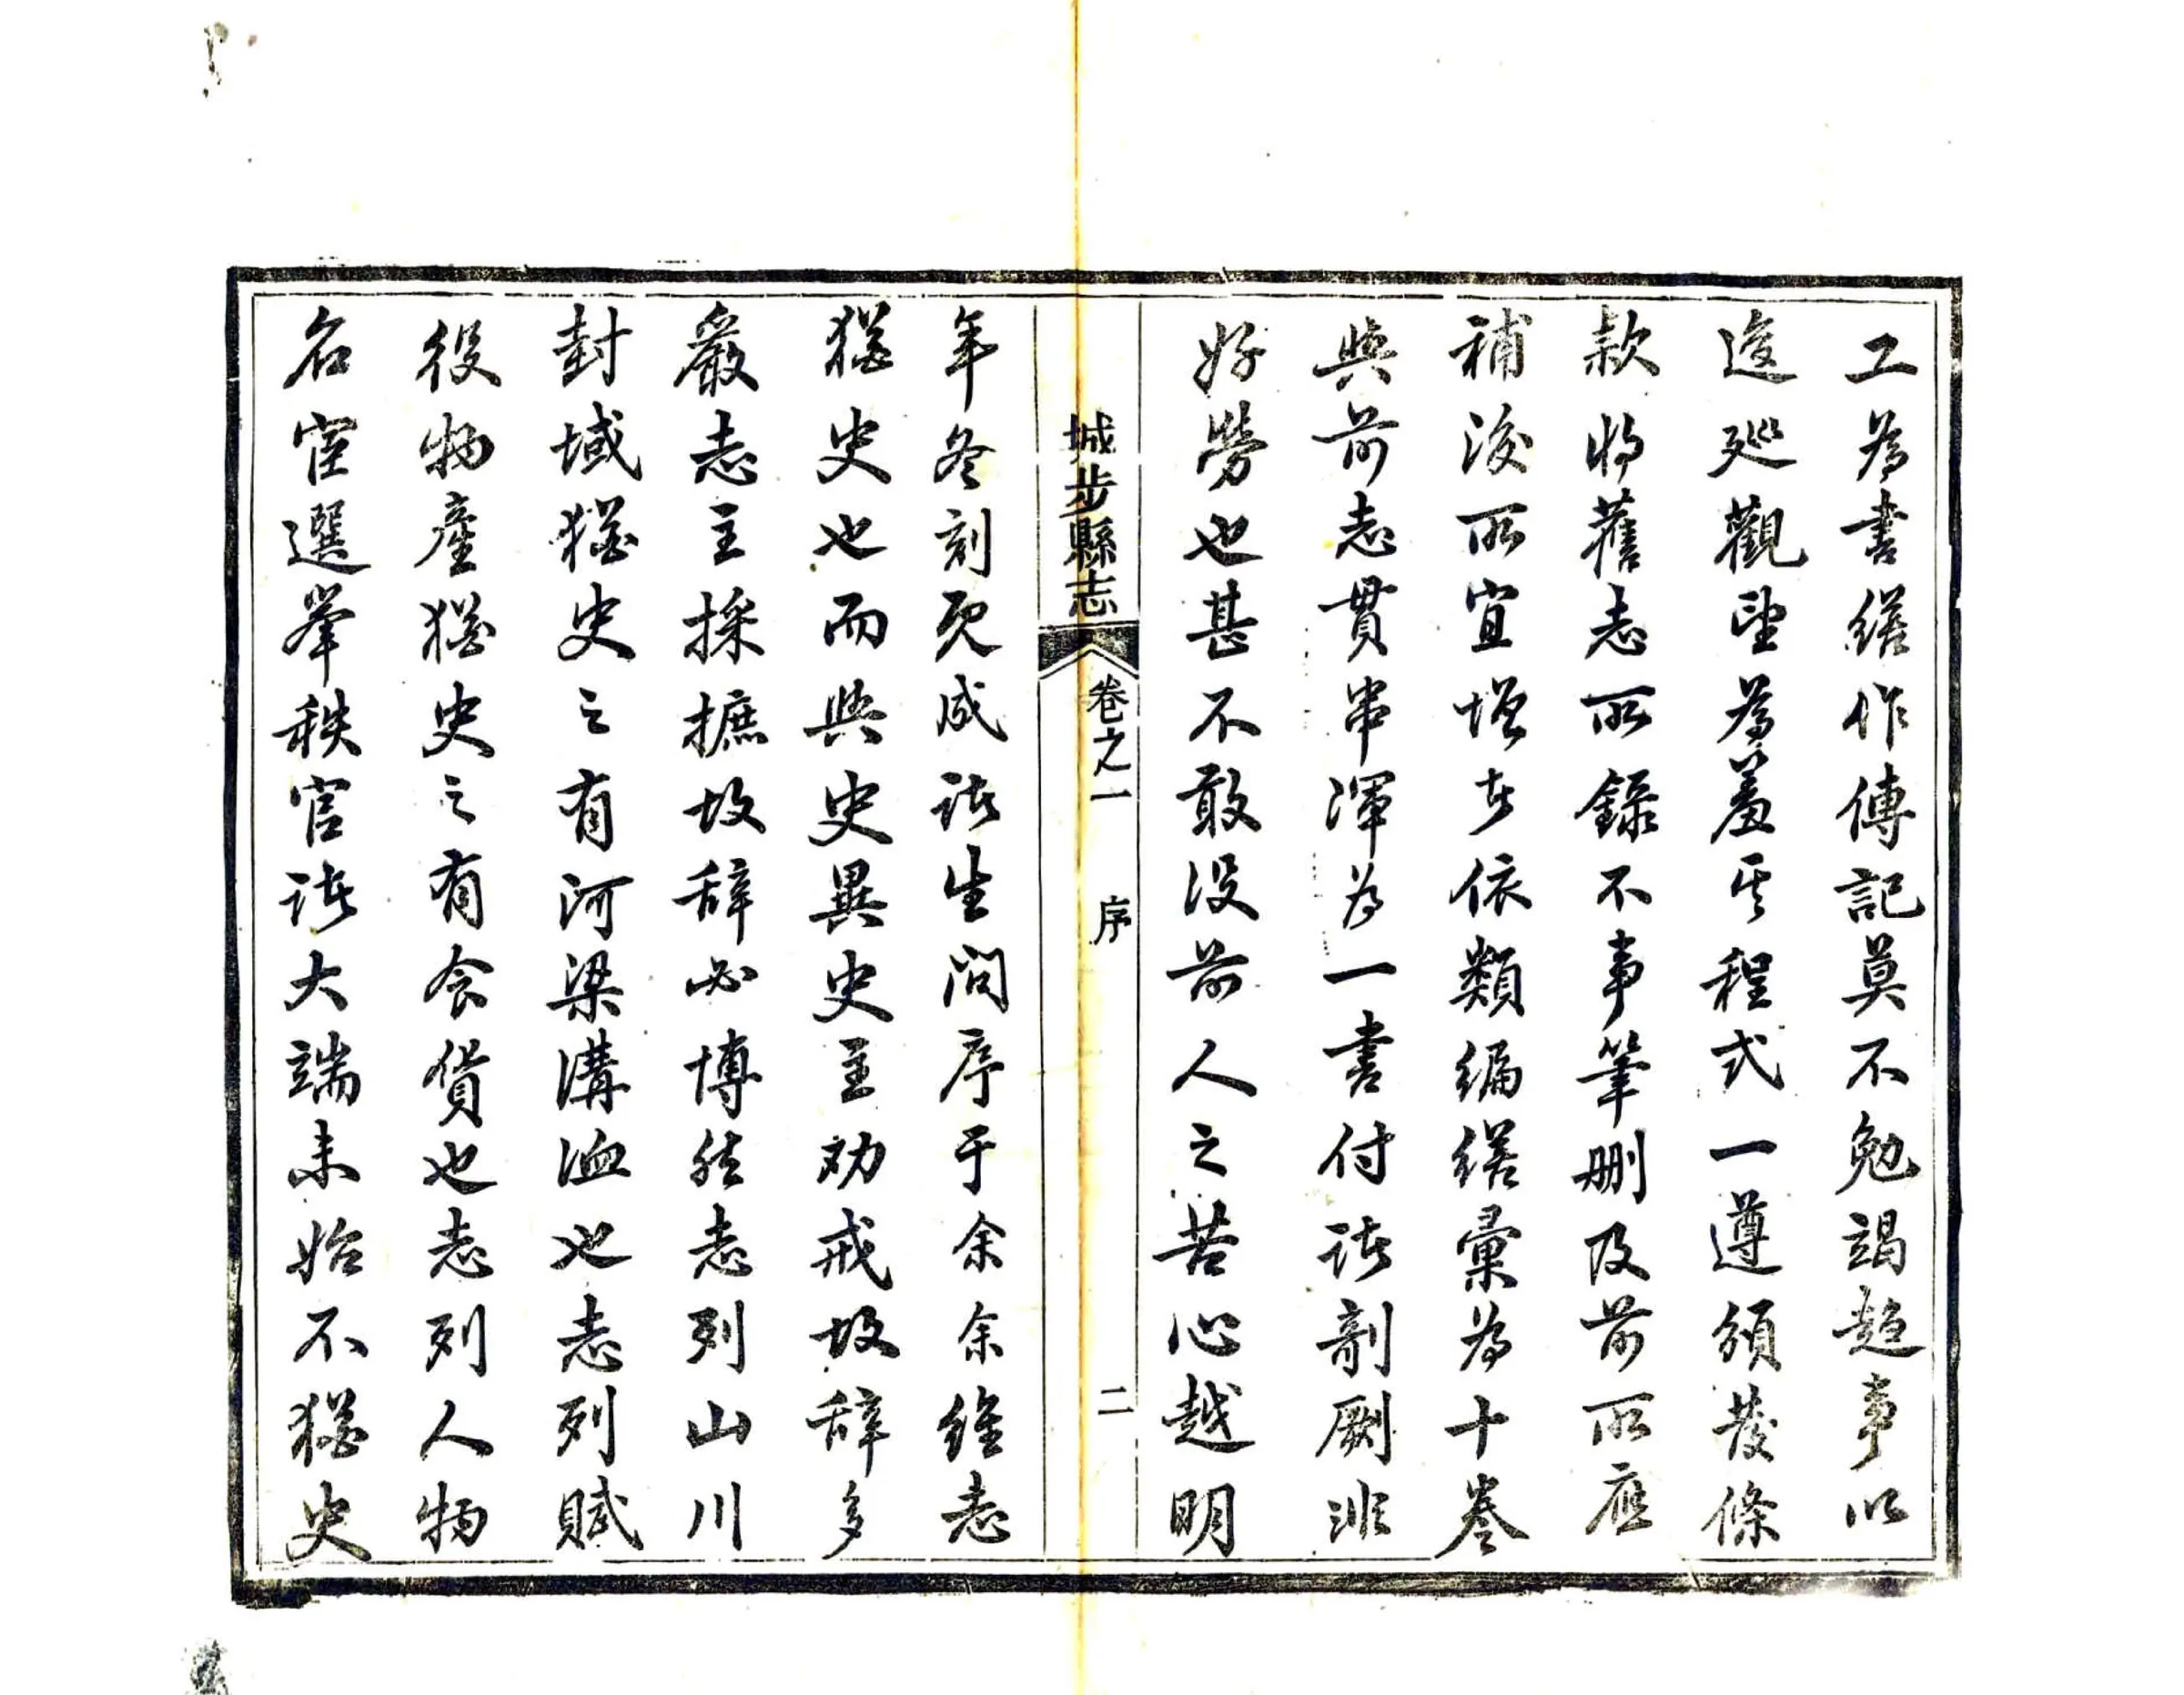 工為書繕作傳記莫不勉竭趨事以
逡廵觀望為羞其程式一遵頒發條
款將舊志所錄不事筆刪及前所應
補後所宜增者依類編繕彙為十卷
與前志貫串渾為一書付諸剞劂非
好勞也甚不敢没前人之苦心越明
城步縣志
卷之一 序 二
年冬刻既成諸生問序于余余維志
猶史也而與史異史主劝戒故辞多
嚴志主採摭故辞必博然志列山川
封域猶史之有河梁溝洫也志列賦
役物產猶史之有食貨也志列人物
名宦選舉秩官諸大端未始不猶史